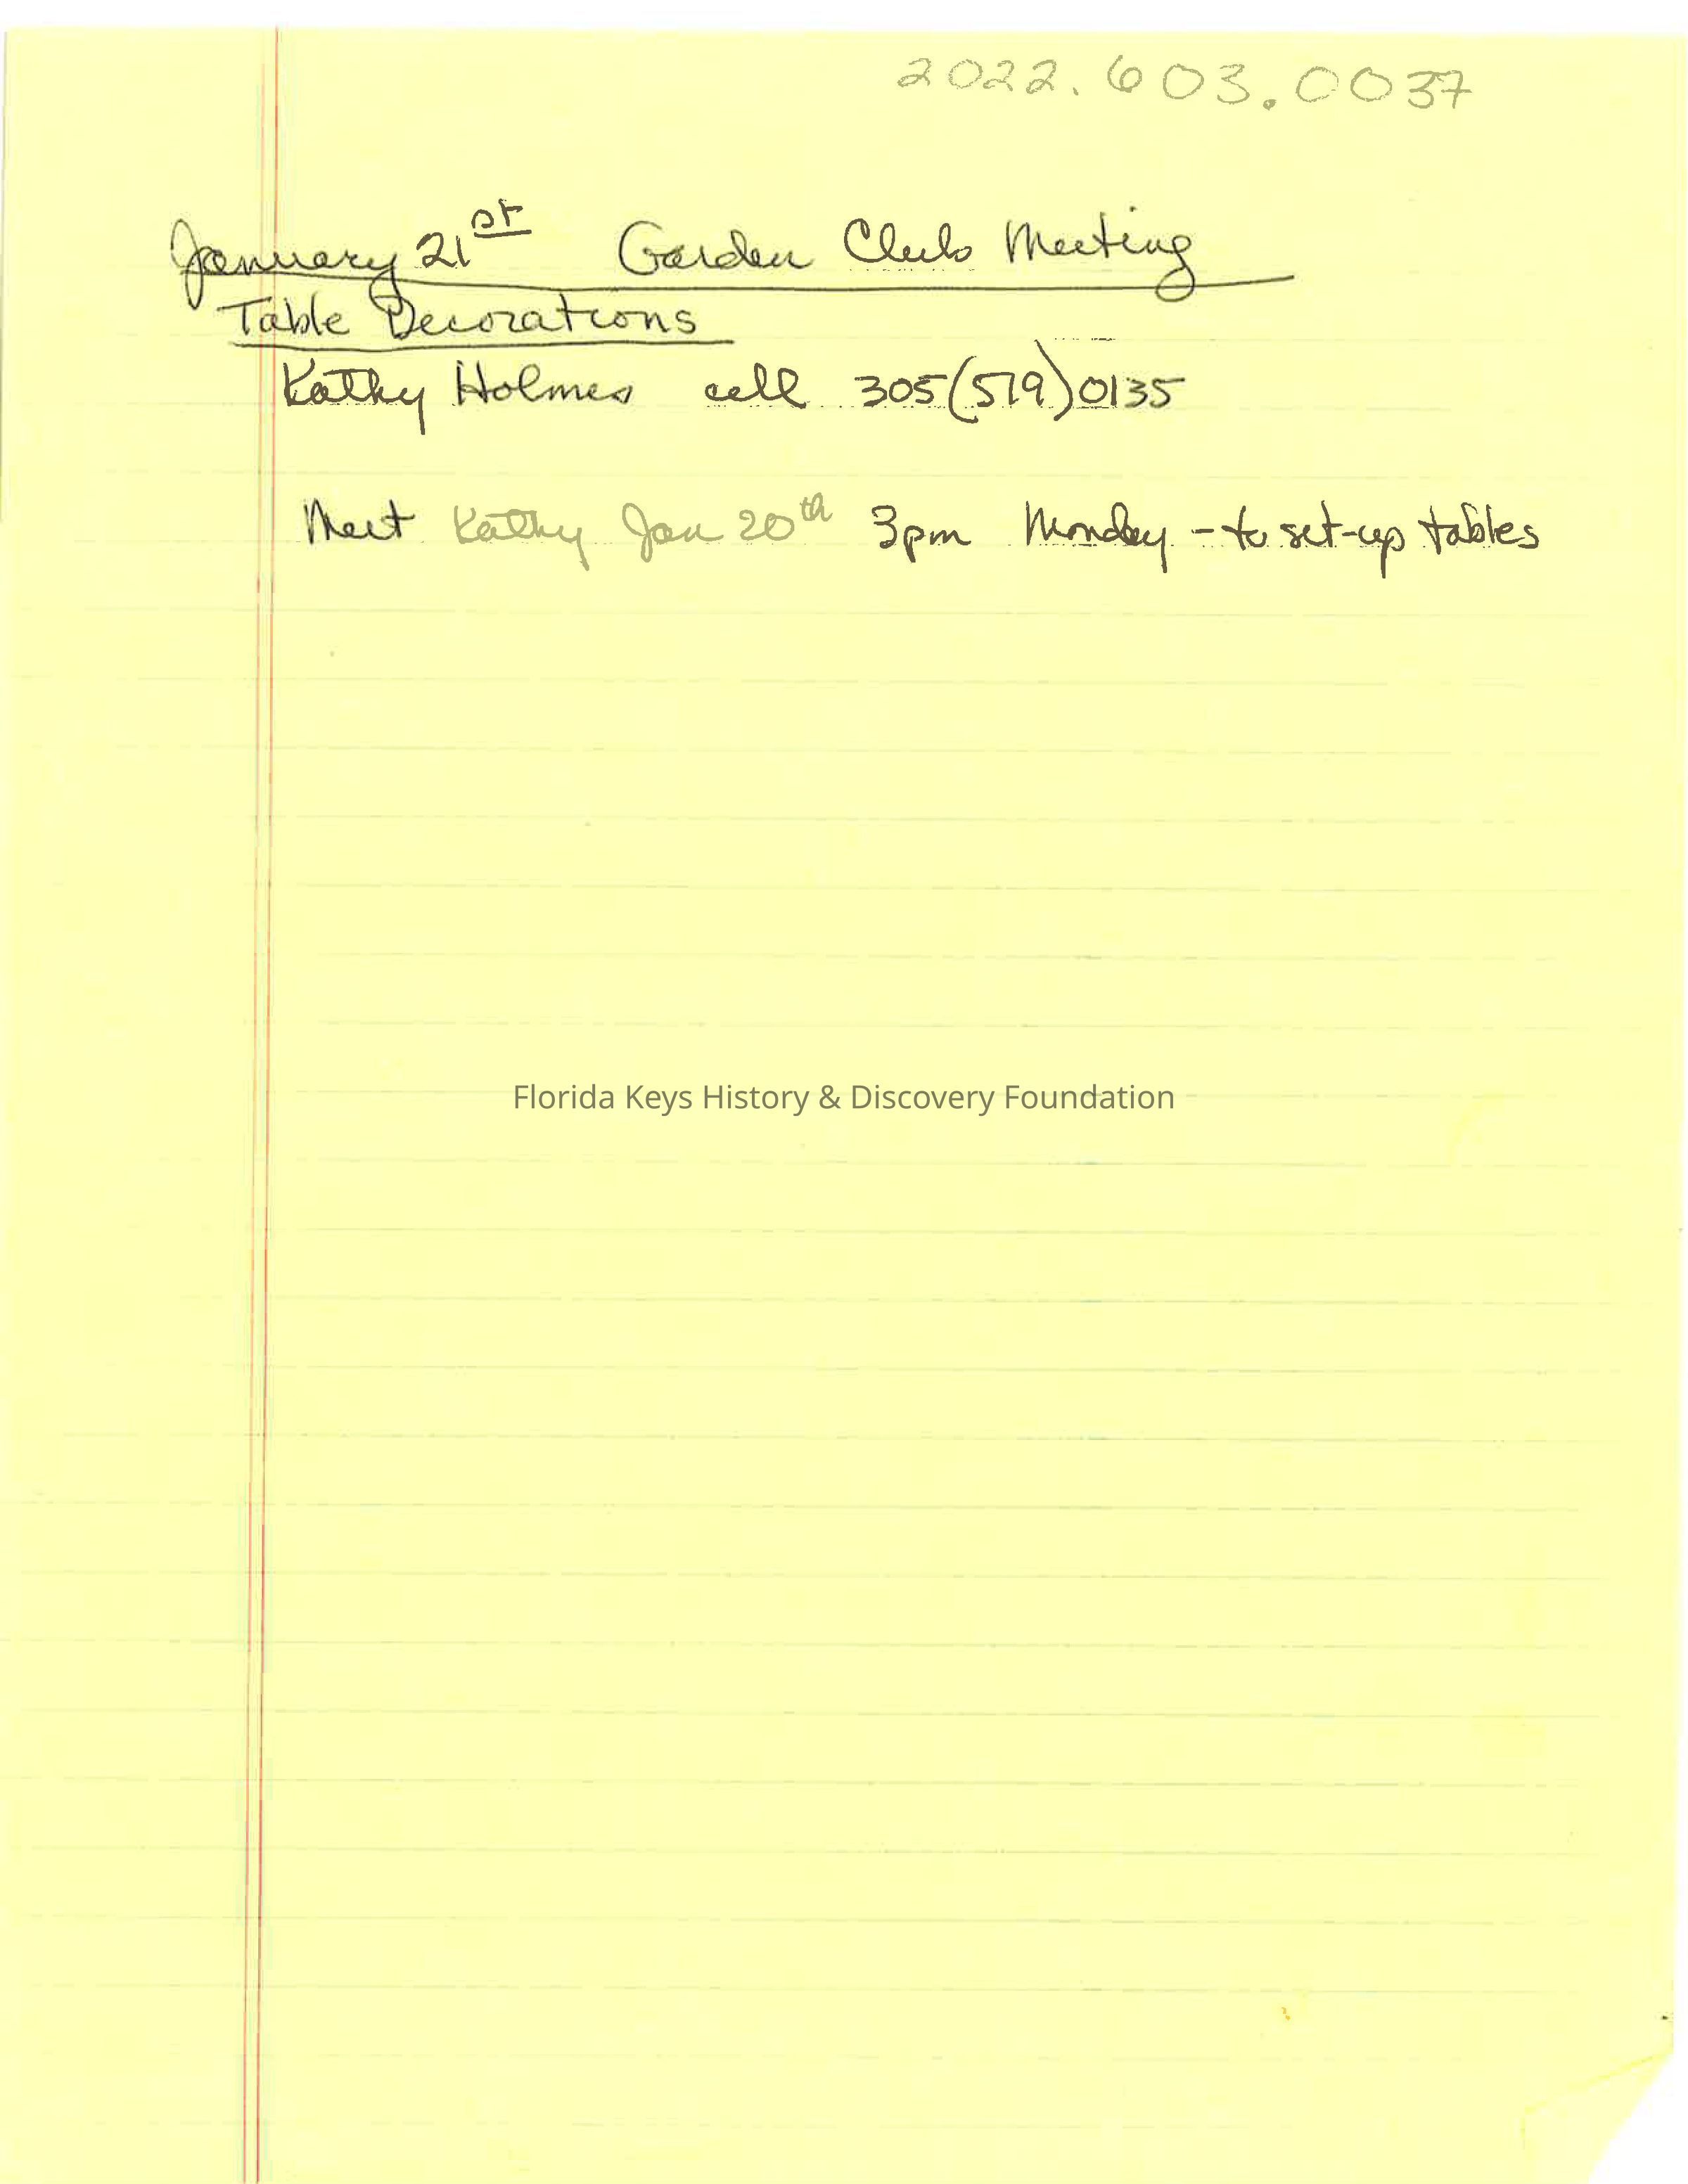 2022.603.0037
January 21st Garden Club Meeting
Table Decorations
Kathy Holmes cell 305(519)0135
Meet Kathy Jan 20th 3pm Monday - to set-up tables
Florida Keys History & Discovery Foundation